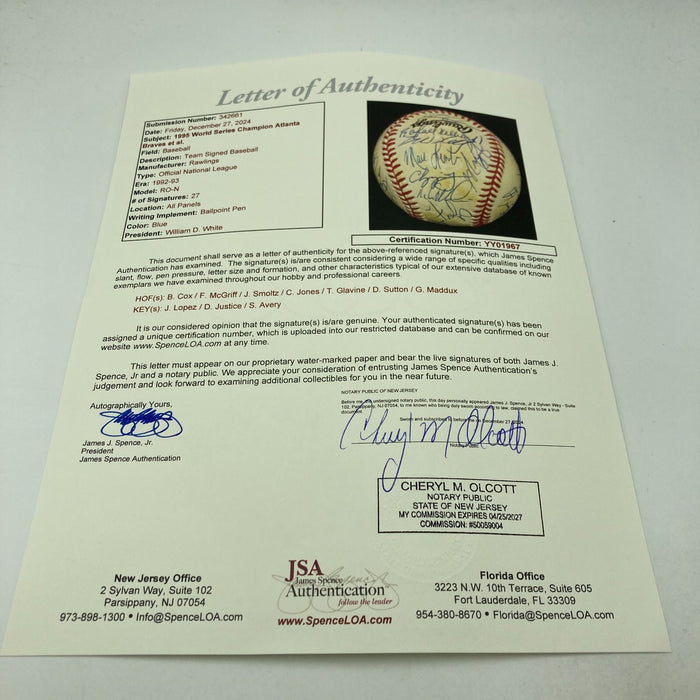 Letter of Authenticity
Submission Number: 342661
Date: Friday, December 27, 2024
Subject: 1995 World Series Champion Atlanta
Braves et al.
Field: Baseball
Description: Team Signed Baseball
Manufacturer: Rawlings
Type: Official National League
Era: 1992-93
Model: RO-N
# of Signatures: 27
Location: All Panels
Writing Implement: Ballpoint Pen
Color: Blue
President: William D. White
Certification Number: YY01967
This document shall serve as a letter of authenticity for the above-referenced signature(s), which James Spence
Authentication has examined. The signature(s) is/are consistent considering a wide range of specific qualities including
slant, flow, pen pressure, letter size and formation, and other characteristics typical of our extensive database of known
exemplars we have examined throughout our hobby and professional careers.
HOF(s): B. Cox / F. McGriff / J. Smoltz / C. Jones / T. Glavine / D. Sutton / G. Maddux
KEY(s): J. Lopez / D. Justice / S. Avery
It is our considered opinion that the signature(s) is/are genuine. Your authenticated signature(s) has been
assigned a unique certification number, which is uploaded into our restricted database and can be confirmed on our
website www.SpenceLOA.com at any time.
This letter must appear on our proprietary water-marked paper and bear the live signatures of both James J.
Spence, Jr and a notary public. We appreciate your consideration of entrusting James Spence Authentication's
judgement and look forward to examining additional collectibles for you in the near future.
NOTARY PUBLIC OF NEW JERSEY
Before me, the undersigned notary public, this day personally appeared James J. Spence, Jr 2 Sylvan Way - Suite
102, Parsippany, NJ 07054, to me known who being duly sworn according to law, claimed this to be a true
document.
Sworn and subscribed to before me on December 27 2024
Autographically Yours,
Cheryl M Olcott
Notary Public
James J. Spence, Jr.
President
James Spence Authentication
CHERYL M. OLCOTT
NOTARY PUBLIC
STATE OF NEW JERSEY
MY COMMISSION EXPIRES 04/25/2027
COMMISSION: #50059004
New Jersey Office
2 Sylvan Way, Suite 102
Parsippany, NJ 07054
973-898-1300 • Info@SpenceLOA.com
JSA
James Spence
Authentication
follow the leader
www.SpenceLOA.com
Florida Office
3223 N.W. 10th Terrace, Suite 605
Fort Lauderdale, FL 33309
954-380-8670 • Florida@SpenceLOA.com